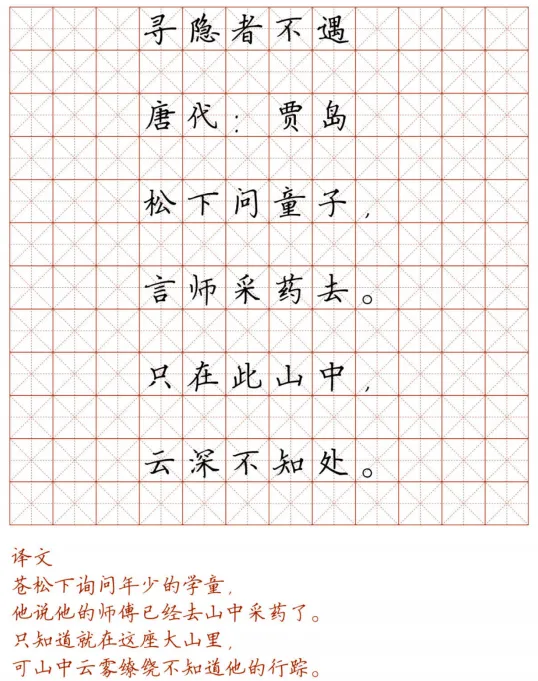 寻隐者不遇
唐代：贾岛
松下问童子，
言师采药去。
只在此山中，
云深不知处。
译文
苍松下询问年少的学童，
他说他的师傅已经去山中采药了。
只知道就在这座大山里，
可山中云雾缭绕不知道他的行踪。